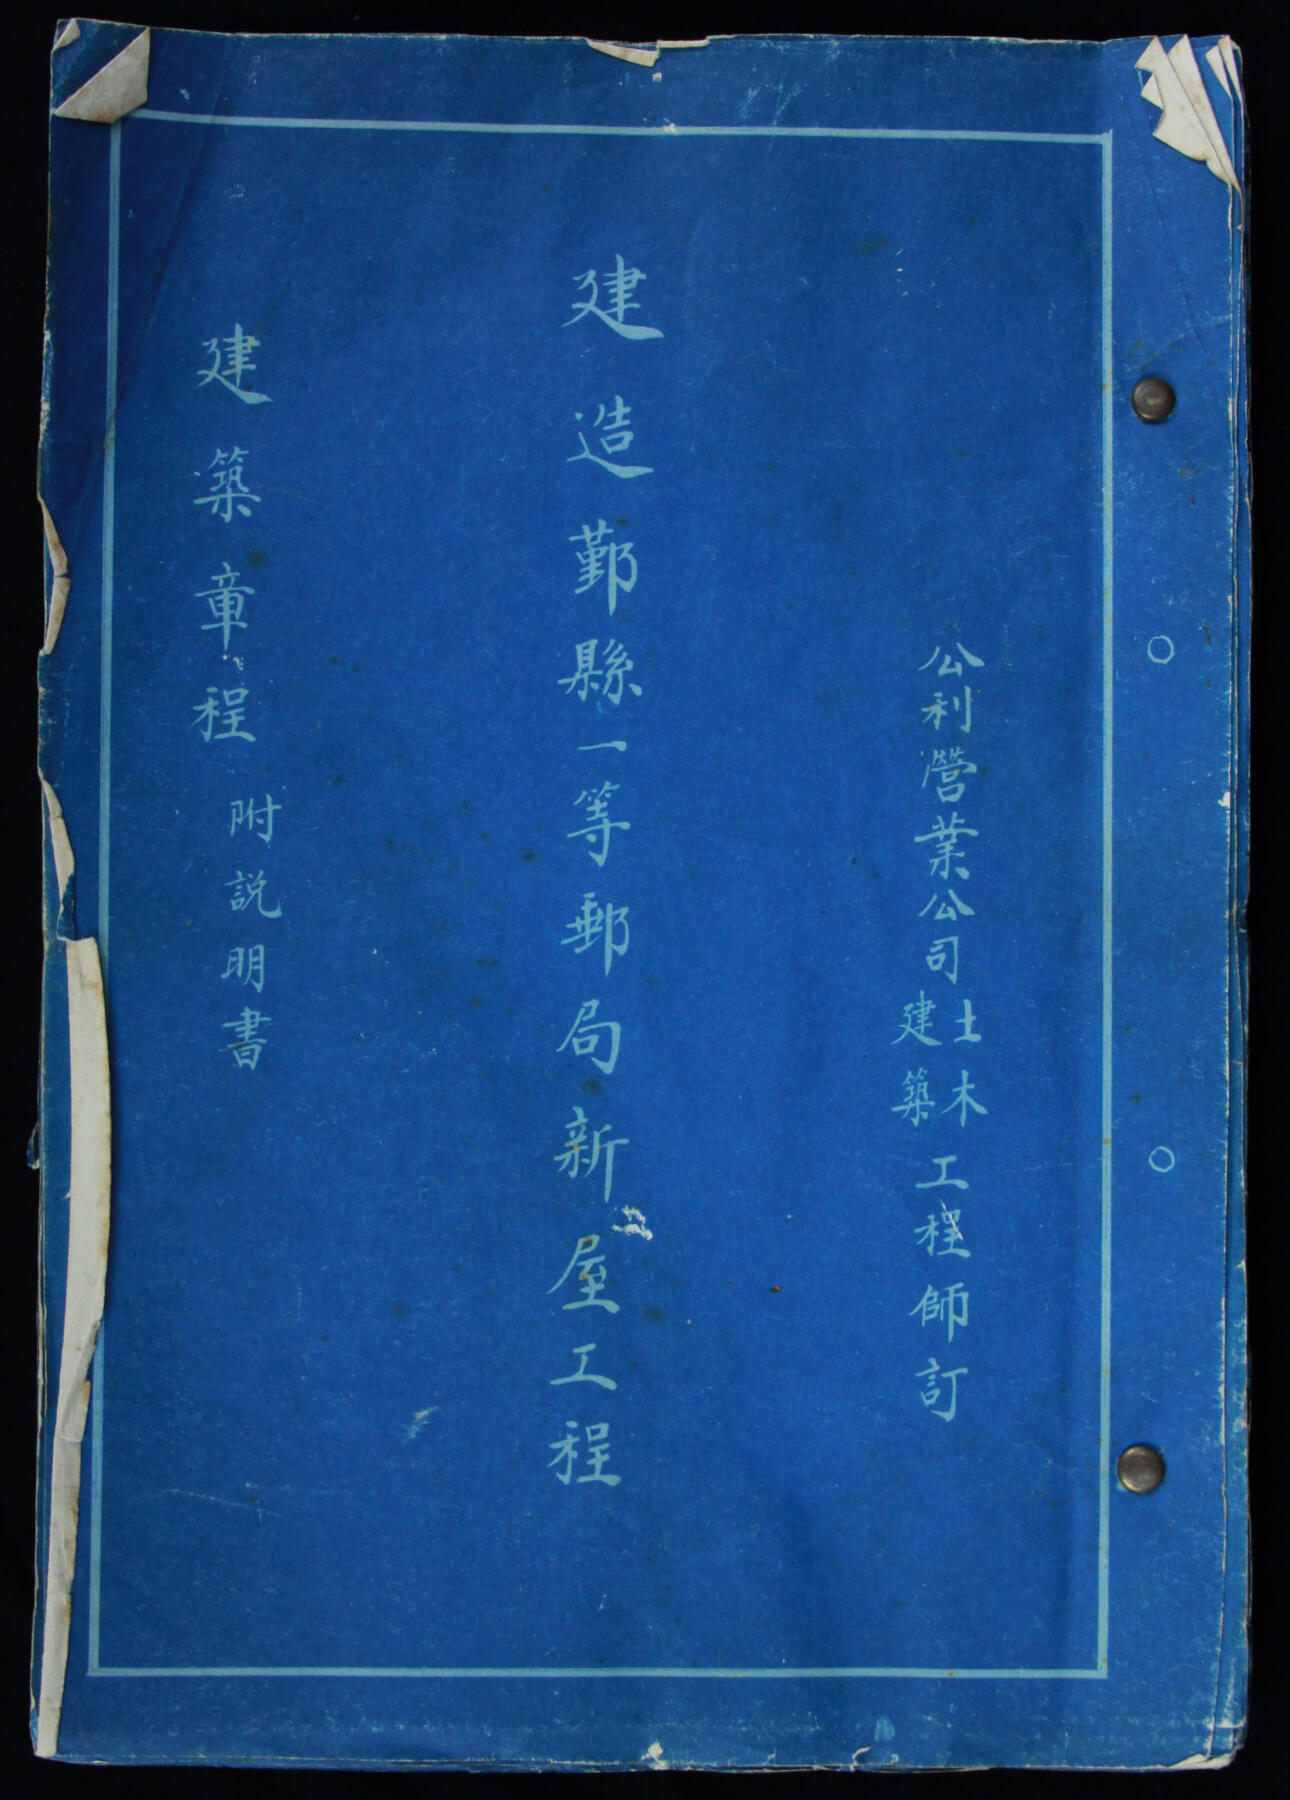 公利營業公司土木建築工程師訂
建造鄞縣一等郵局新屋工程
建築章程 附説明書